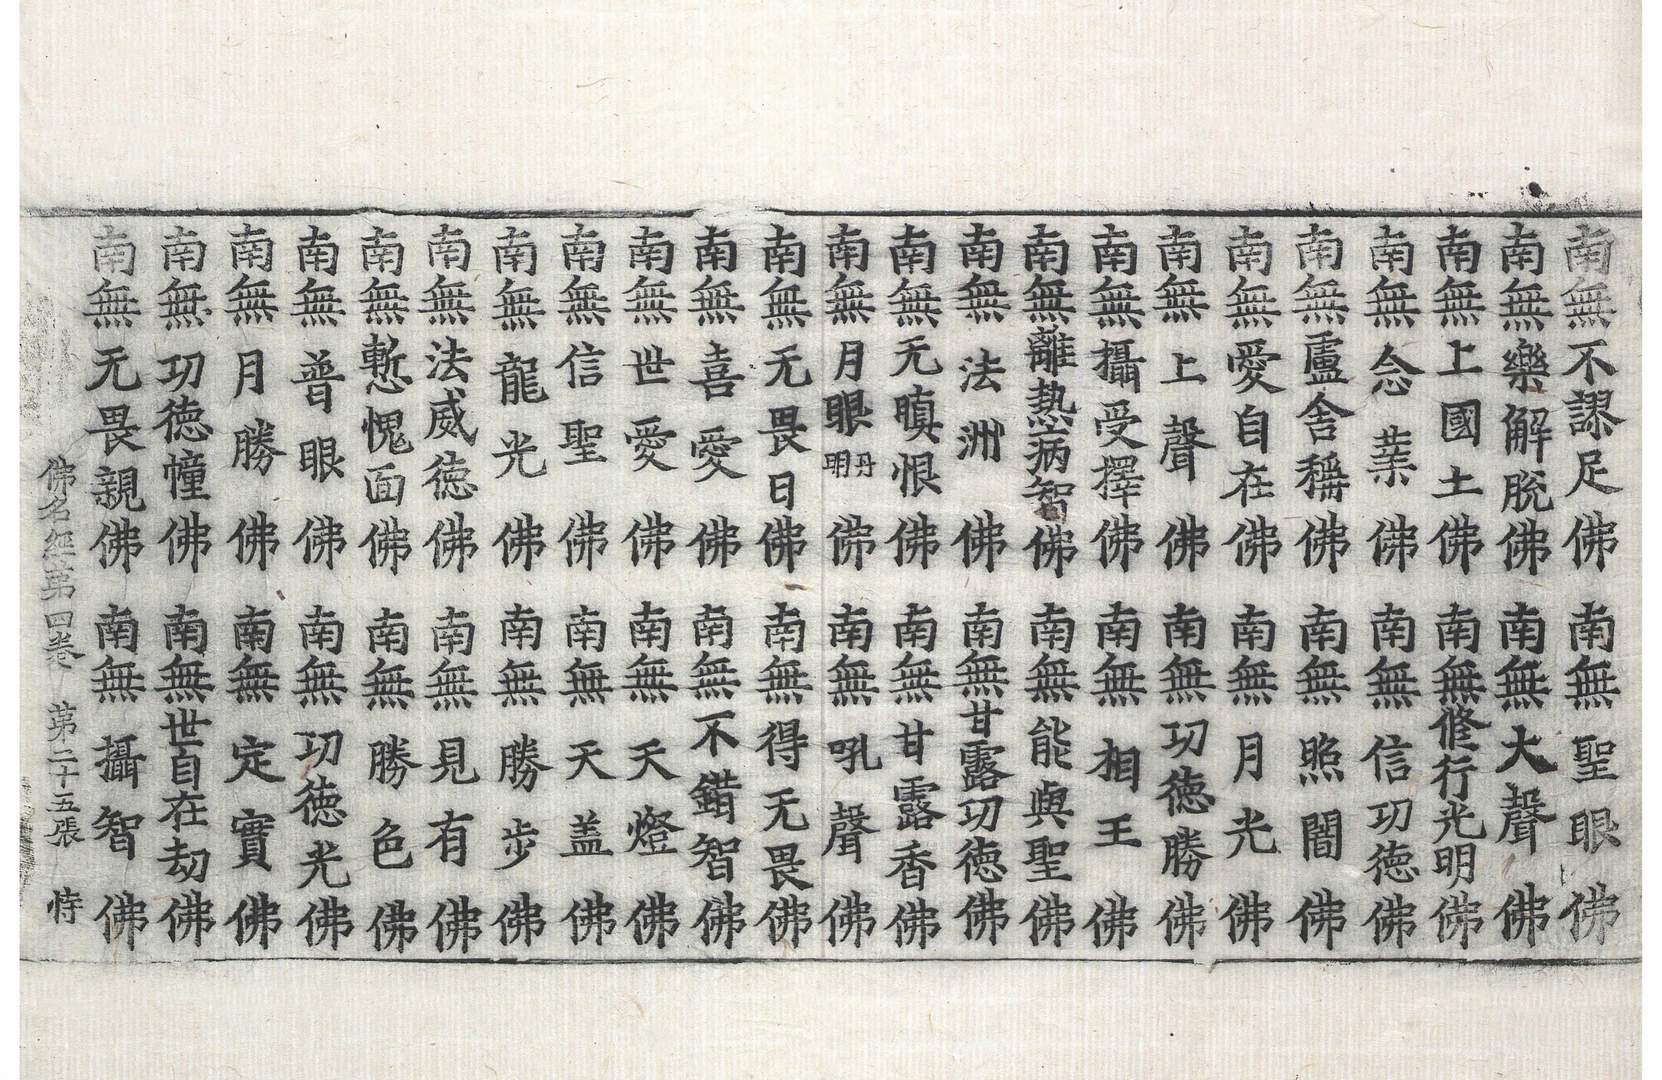 南無不謬足佛南無聖眼佛
南無樂解脫佛南無大聲佛
南無上國土佛南無脩行光明佛
南無念業佛南無信功德佛
南無盧舍稱佛南無照闇佛
南無愛自在佛南無月光佛
南無上聲佛南無功德勝佛
南無攝受擇佛南無相王佛
南無離熱病智佛南無能與聖佛
南無法洲佛南無甘露功德佛
南無无瞋恨佛南無甘露香佛
南無月眼丹明佛南無吼聲佛
南無无畏日佛南無得无畏佛
南無喜愛佛南無不錯智佛
南無世愛佛南無天燈佛
南無信聖佛南無天盖佛
南無龍光佛南無勝步佛
南無法威德佛南無見有佛
南無慙愧面佛南無勝色佛
南無普眼佛南無功德光佛
南無月勝佛南無定實佛
南無功德幢佛南無世自在劫佛
南無无畏親佛南無攝智佛
佛名經第四卷 第二十五張 恃